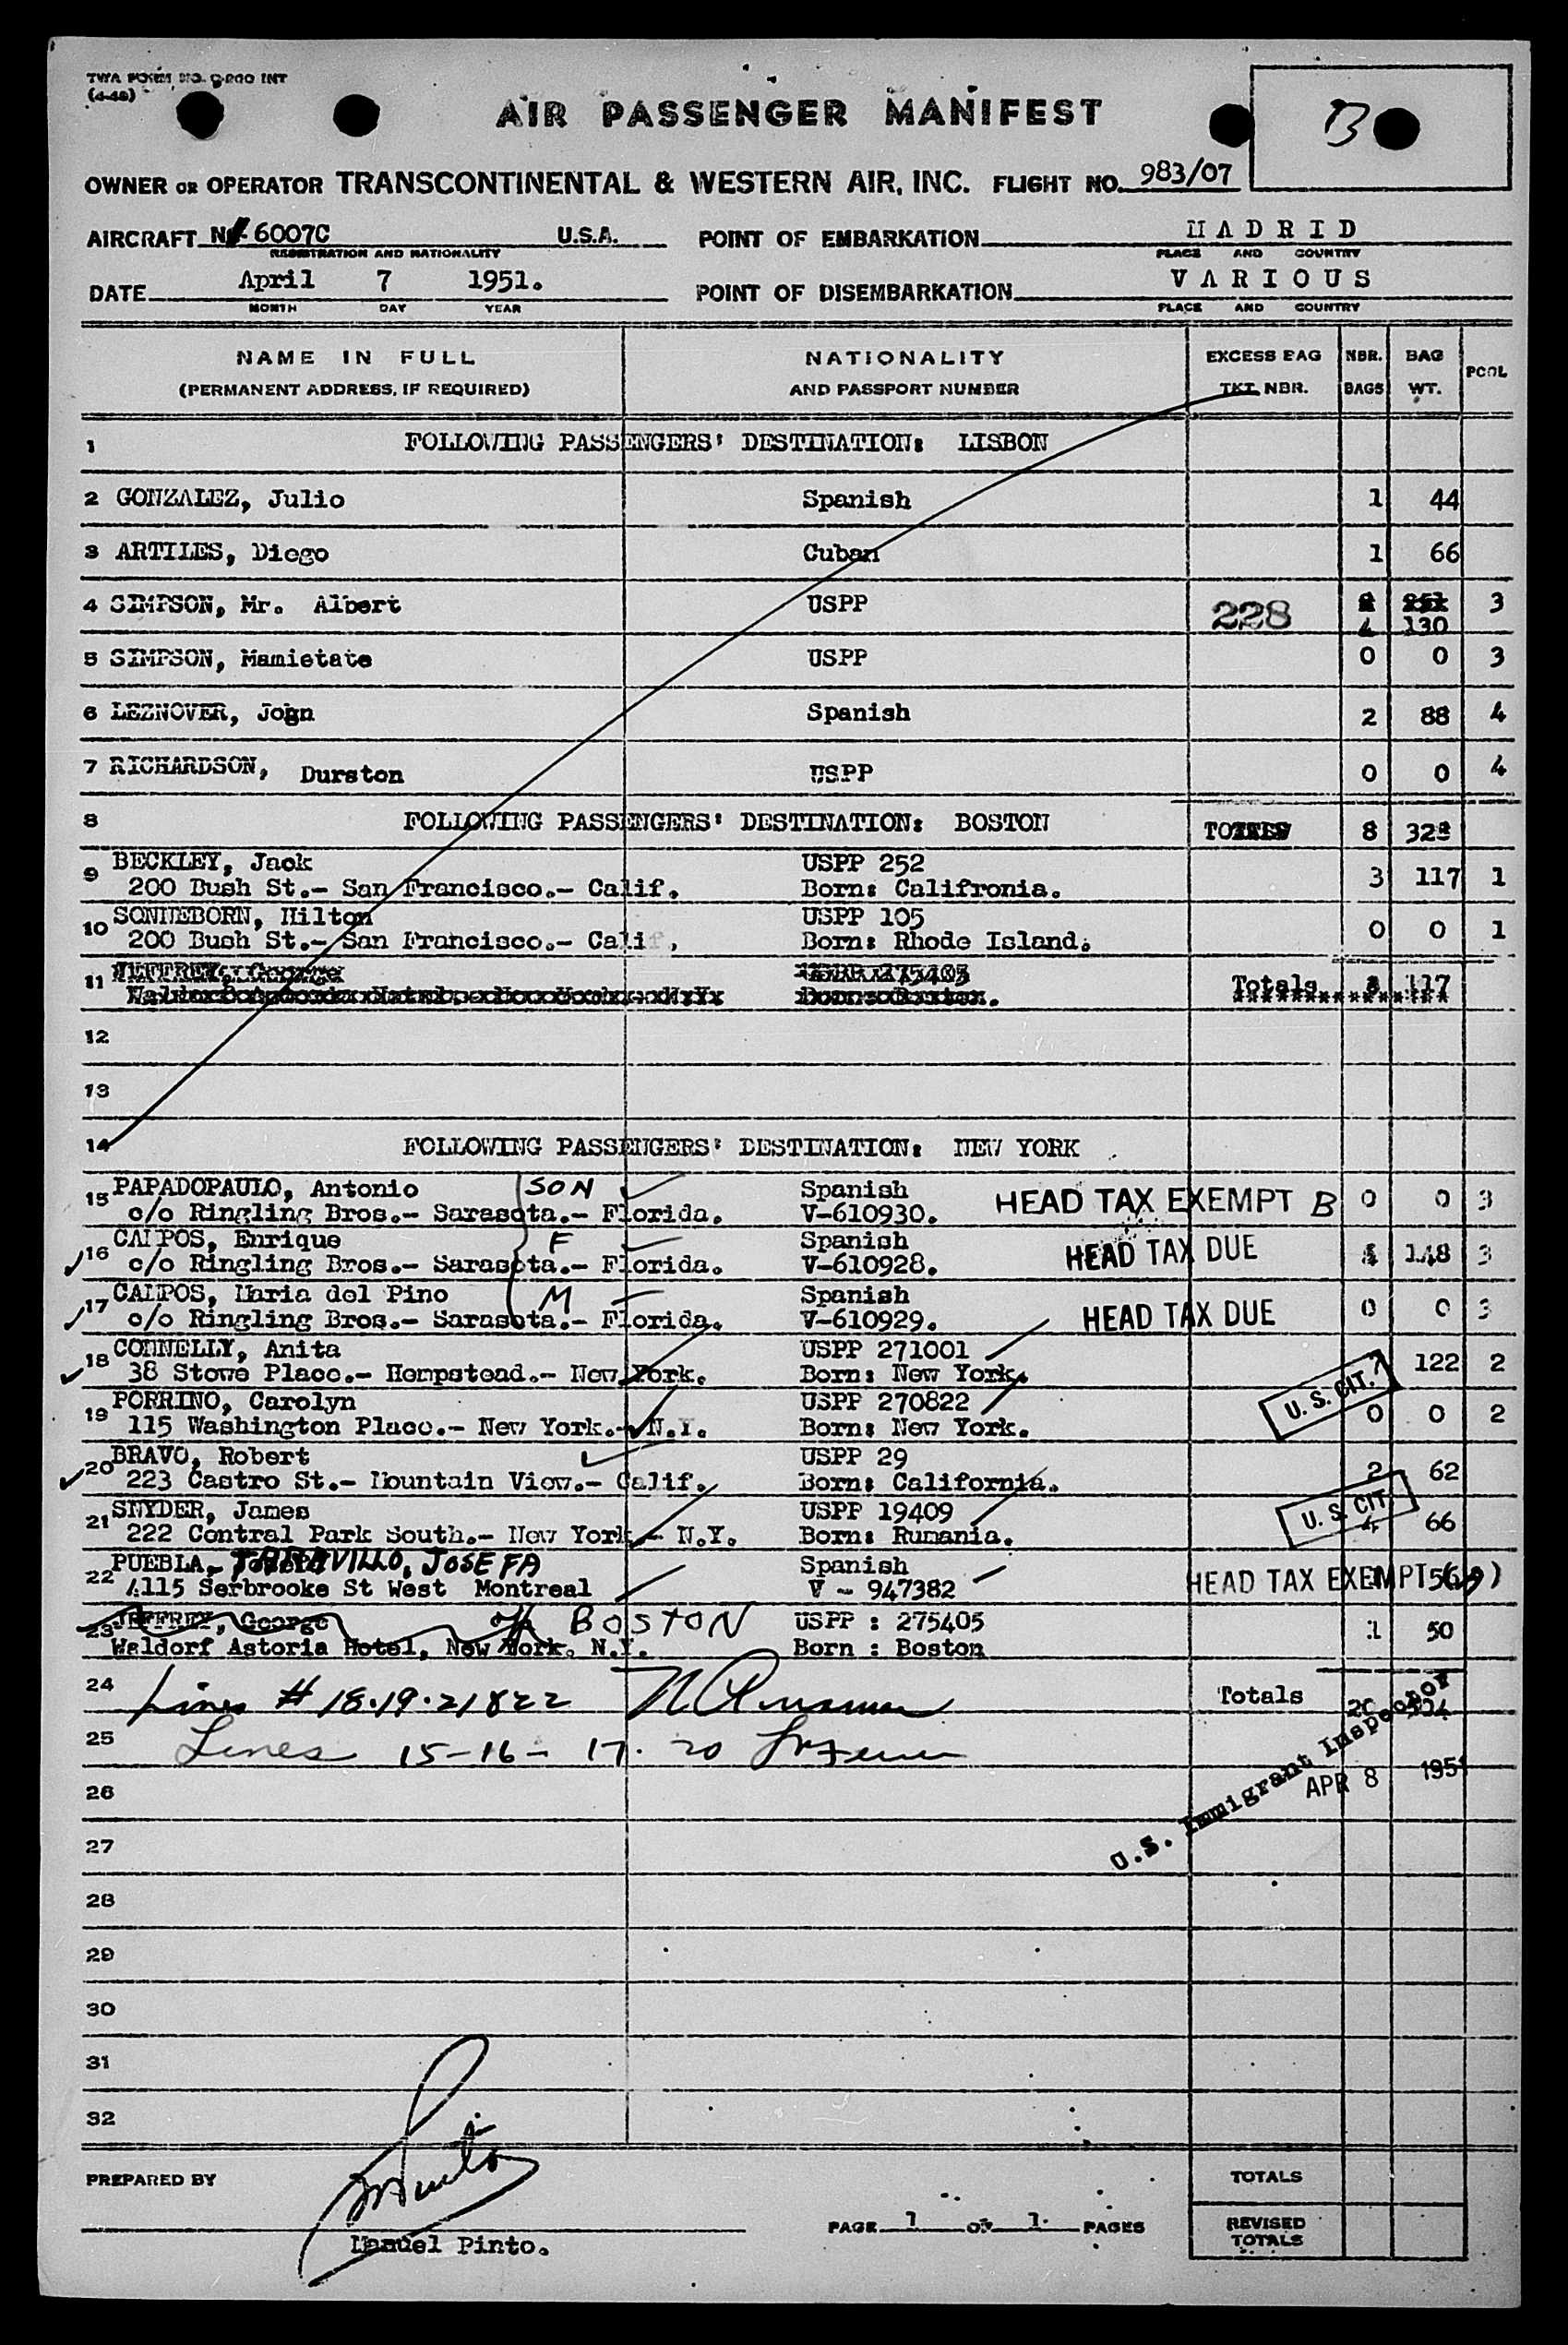 TWA FORM NO. O-200 INT
(4-48)
AIR PASSENGER MANIFEST
B
OWNER OR OPERATOR TRANSCONTINENTAL & WESTERN AIR, INC. FLIGHT NO. 983/07
AIRCRAFT N 6007C U.S.A. POINT OF EMBARKATION MADRID
REGISTRATION AND NATIONALITY PLACE AND COUNTRY
DATE April 7 1951. POINT OF DISEMBARKATION VARIOUS
MONTH DAY YEAR PLACE AND COUNTRY
NAME IN FULL NATIONALITY EXCESS BAG NBR. BAG POOL
(PERMANENT ADDRESS, IF REQUIRED) AND PASSPORT NUMBER TKT. NBR. BAGS WT.
1 FOLLOWING PASSENGERS' DESTINATION: LISBON
2 GONZALEZ, Julio Spanish 1 44
3 ARTILES, Diego Cuban 1 66
4 SIMPSON, Mr. Albert USPP 228 3
4 130
5 SIMPSON, Mamietate USPP 0 0 3
6 LEZNOVER, Jogn Spanish 2 88 4
7 RICHARDSON, Durston USPP 0 0 4
8 FOLLOWING PASSENGERS' DESTINATION: BOSTON 8 328
9 BECKLEY, Jack USPP 252 3 117 1
200 Bush St.- San Francisco.- Calif. Born: Califronia.
10 SONNEBORN, Milton USPP 105 0 0 1
200 Bush St.- San Francisco.- Calif, Born: Rhode Island.
11 JEFFREY, George USPP 275405 Totals 3 117
12
13
14 FOLLOWING PASSENGERS' DESTINATION: NEW YORK
15 PAPADOPAULO, Antonio SON Spanish HEAD TAX EXEMPT B 0 0 3
c/o Ringling Bros.- Sarasota.- Florida. V-610930.
16 CAMPOS, Enrique F Spanish HEAD TAX DUE 4 148 3
c/o Ringling Bros.- Sarasota.- Florida. V-610928.
17 CAMPOS, Maria del Pino M Spanish HEAD TAX DUE 0 0 3
c/o Ringling Bros.- Sarasota.- Florida. V-610929.
18 CONNELLY, Anita USPP 271001 7 122 2
38 Stowe Place.- Hempstead.- New York. Born: New York.
19 PORRINO, Carolyn USPP 270822 U. S. CIT. 0 0 2
115 Washington Place.- New York.- N.Y. Born: New York.
20 BRAVO, Robert USPP 29 2 62
223 Castro St.- Mountain View.- Calif. Born: California.
21 SNYDER, James USPP 19409 U. S. CIT 4 66
222 Central Park South.- New York.- N.Y. Born: Rumania.
22 PUEBLA, TARAVILLO, JOSEFA Spanish HEAD TAX EXEMPT 56
4115 Serbrooke St West Montreal V - 947382
23 JEFFREY, George off BOSTON USPP : 275405 1 50
Waldorf Astoria Hotel, New York. N.Y. Born : Boston
24 Lines # 18.19.21 & 22 Totals 20 504
25 Lines 15-16- 17. 20
U.S. Immigrant Inspector
APR 8 1951
26
27
28
29
30
31
32
PREPARED BY TOTALS
Manuel Pinto. PAGE 1 OF 1. PAGES REVISED TOTALS